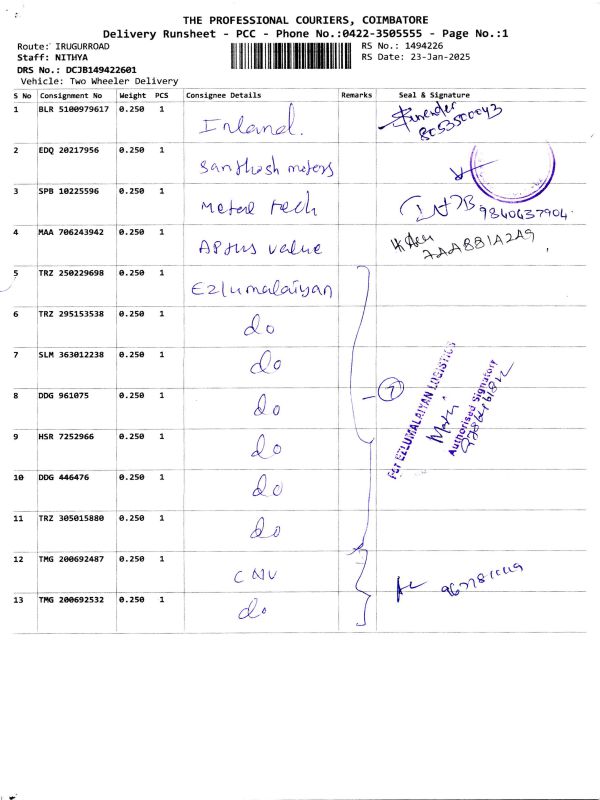 THE PROFESSIONAL COURIERS, COIMBATORE
Delivery Runsheet - PCC - Phone No.:0422-3505555 - Page No.:1
Route: IRUGURROAD
RS No.: 1494226
Staff: NITHYA
RS Date: 23-Jan-2025
DRS No.: DCJB149422601
Vehicle: Two Wheeler Delivery
S No Consignment No Weight PCS Consignee Details Remarks Seal & Signature
1 BLR 5100979617 0.250 1 Inland.
2 EDQ 20217956 0.250 1 Santhosh meters
3 SPB 10225596 0.250 1 Metal tech 9840637904
4 MAA 706243942 0.250 1 Aptus value 7AAB81A2A9
5 TRZ 250229698 0.250 1 Ezlumalaiyan
6 TRZ 295153538 0.250 1 do
7 SLM 363012238 0.250 1 do
8 DDG 961075 0.250 1 do 7
9 HSR 7252966 0.250 1 do
10 DDG 446476 0.250 1 do
11 TRZ 305015880 0.250 1 do
12 TMG 200692487 0.250 1 CNV
13 TMG 200692532 0.250 1 do
For EZLUMALAIYAN LOGISTICS
Authorised Signatory